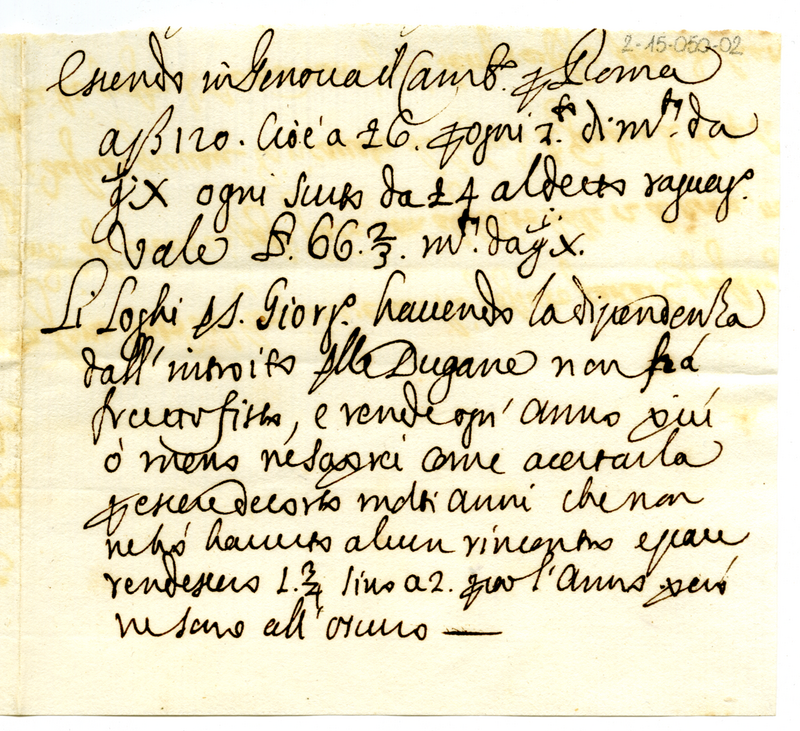 2-15-050-02
Essendo in Genova il Camb.º p Roma
a ß 120. Cioè a £6. p ogni di m.ta da
X ogni scuto da £4 al detto raguag.º
Vale 66.2/3. m.ta da X.
Li Loghi d S. Giorg.º havendo la dipendenza
dall'introito dlle Dugane non hà
frutto fisso, e rende ogn'anno più
ò meno nè saprei come acertarla
p essere decorso molti anni che non
ne hò havuto alcun rincontro e pare
rendessero 1.3/4 sino a 2. l'Anno però
ne sono all'oscuro —